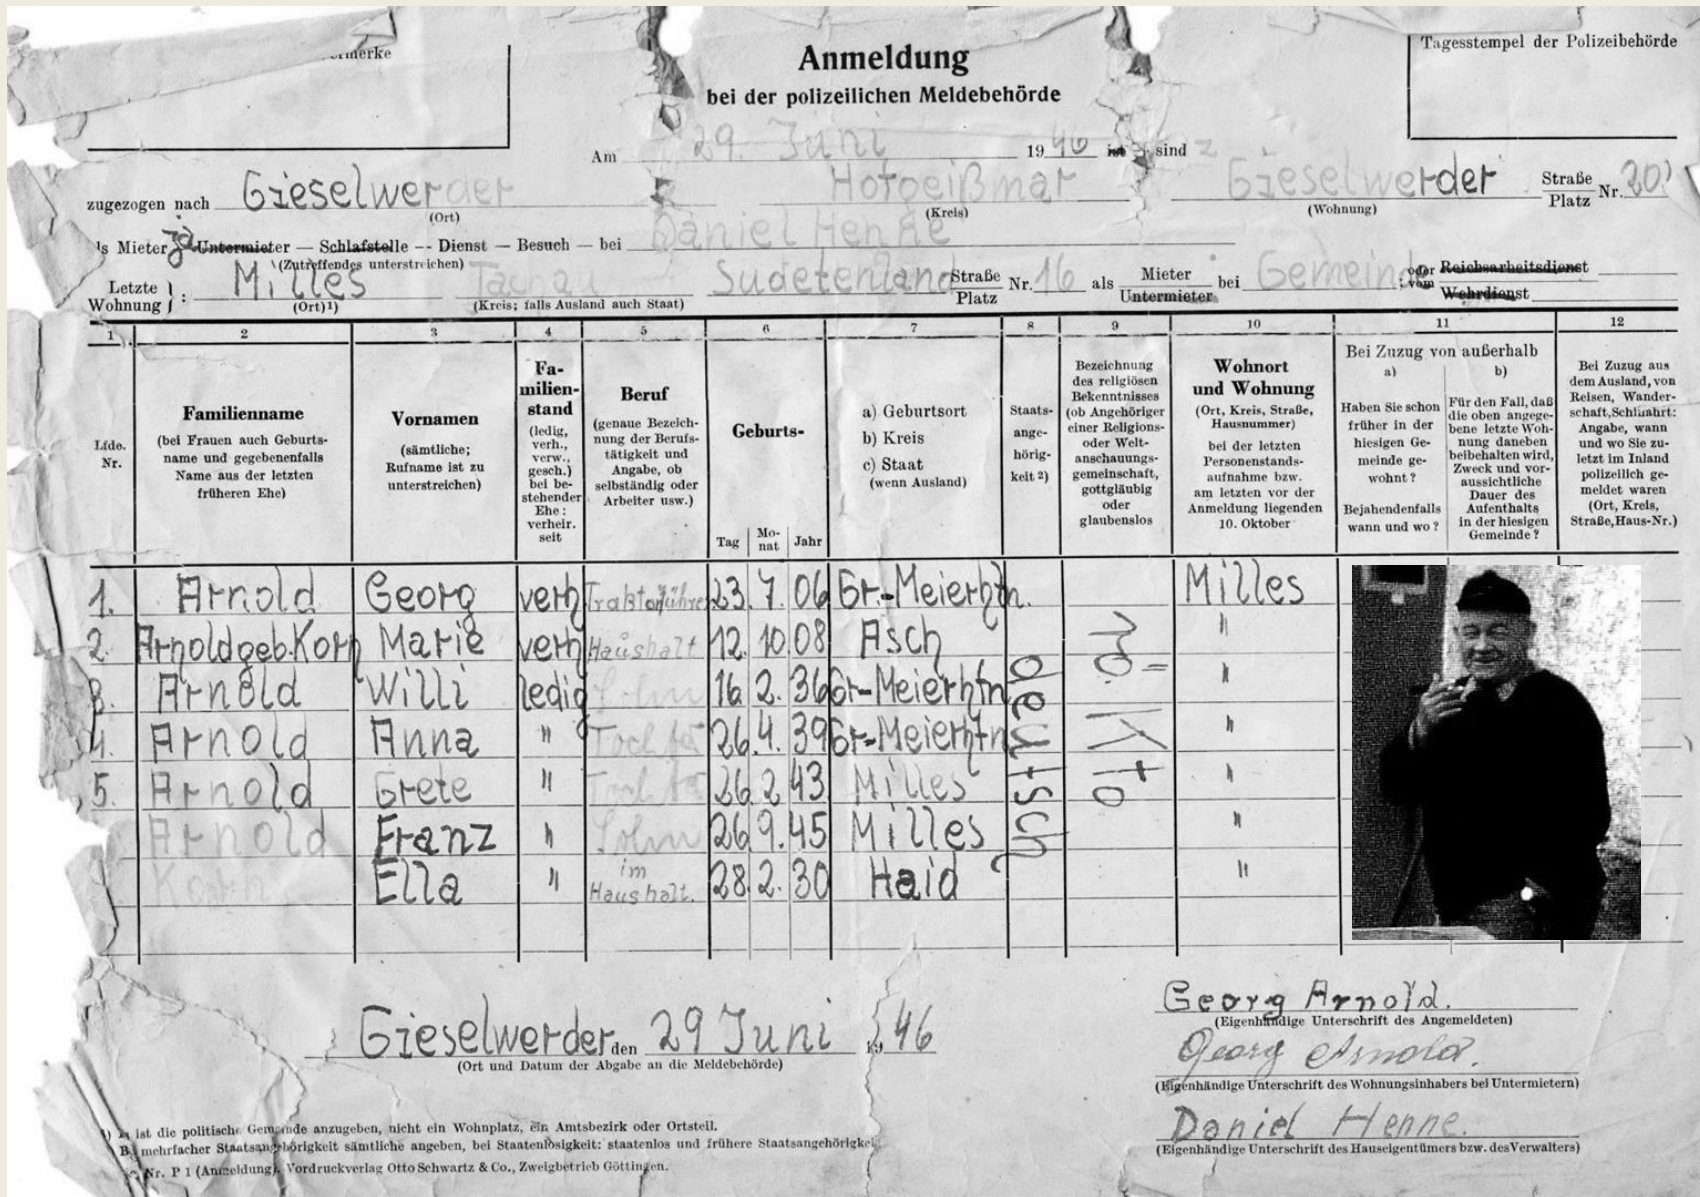 Anmeldung
bei der polizeilichen Meldebehörde
Tagesstempel der Polizeibehörde
Am 29. Juni 1946 ist sind
zugezogen nach Gieselwerder Hofgeißmar Gieselwerder Straße Platz Nr. 20
(Ort) (Kreis) (Wohnung)
Mieter ja Untermieter — Schlafstelle -- Dienst — Besuch — bei Daniel Henne
(Zutreffendes unterstreichen)
Letzte Wohnung : Milles Tachau Sudetenland Straße Platz Nr. 16 als Mieter Untermieter bei Gemeinde oder vom Reichsarbeitsdienst Wehrdienst
(Ort)¹) (Kreis; falls Ausland auch Staat)
1 2 3 4 5 6 7 8 9 10 11 12
Lfde. Nr.
Familienname
(bei Frauen auch Geburts-
name und gegebenenfalls
Name aus der letzten
früheren Ehe)
Vornamen
(sämtliche;
Rufname ist zu
unterstreichen)
Fa-
milien-
stand
(ledig,
verh.,
verw.,
gesch.)
bei be-
stehender
Ehe:
verheir.
seit
Beruf
(genaue Bezeich-
nung der Berufs-
tätigkeit und
Angabe, ob
selbständig oder
Arbeiter usw.)
Geburts-
Tag Mo-
nat Jahr
a) Geburtsort
b) Kreis
c) Staat
(wenn Ausland)
Staats-
ange-
hörig-
keit ²)
Bezeichnung
des religiösen
Bekenntnisses
(ob Angehöriger
einer Religions-
oder Welt-
anschauungs-
gemeinschaft,
gottgläubig
oder
glaubenslos
Wohnort
und Wohnung
(Ort, Kreis, Straße,
Hausnummer)
bei der letzten
Personenstands-
aufnahme bzw.
am letzten vor der
Anmeldung liegenden
10. Oktober
Bei Zuzug von außerhalb
a)
Haben Sie schon
früher in der
hiesigen Ge-
meinde ge-
wohnt?
Bejahendenfalls
wann und wo?
b)
Für den Fall, daß
die oben angege-
bene letzte Woh-
nung daneben
beibehalten wird,
Zweck und vor-
aussichtliche
Dauer des
Aufenthalts
in der hiesigen
Gemeinde?
Bei Zuzug aus
dem Ausland, von
Reisen, Wander-
schaft, Schiffahrt:
Angabe, wann
und wo Sie zu-
letzt im Inland
polizeilich ge-
meldet waren
(Ort, Kreis,
Straße, Haus-Nr.)
1. Arnold Georg verh Traktorführer 23. 7. 06 Gr.-Meierhfn. Milles
2. Arnold geb. Korn Marie verh Haushalt 12. 10. 08 Asch "
3. Arnold Willi ledig Sohn 16. 2. 36 Gr-Meierhfn "
4. Arnold Anna " 26. 4. 39 Gr-Meierhfn "
5. Arnold Grete " 26. 2. 43 Milles "
Arnold Franz " Sohn 26 9. 45 Milles "
Ella " im Haushalt. 28. 2. 30 Haid "
deutsch
Gieselwerder den 29 Juni 1946
(Ort und Datum der Abgabe an die Meldebehörde)
Georg Arnold.
(Eigenhändige Unterschrift des Angemeldeten)
Georg Arnold.
(Eigenhändige Unterschrift des Wohnungsinhabers bei Untermietern)
Daniel Henne.
(Eigenhändige Unterschrift des Hauseigentümers bzw. des Verwalters)
ist die politische Gemeinde anzugeben, nicht ein Wohnplatz, ein Amtsbezirk oder Ortsteil.
mehrfacher Staatsangehörigkeit sämtliche angeben, bei Staatenlosigkeit: staatenlos und frühere Staatsangehörigkei
Nr. P 1 (Anmeldung). Vordruckverlag Otto Schwartz & Co., Zweigbetrieb Göttingen.